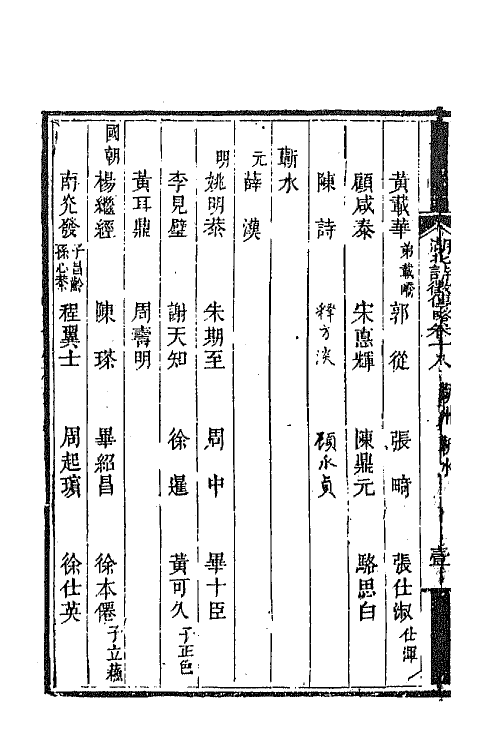 湖北詩徵傳略卷十八 蘄州 蘄水 壹
黃載華 弟載 郭從 張 張仕淑 仕渾
顧咸泰 宋憲輝 陳鼎元 駱思白
陳詩 釋方淡 顧永貞
蘄水
元 薛漢
明 姚明恭 朱期至 周中 畢十臣
李見璧 謝天知 徐暹 黃可久 子正色
黃耳鼎 周壽明
國朝 楊繼經 陳琛 畢紹昌 徐本僊 子立
南光發 子昌齡 孫心恭 程翼士 周起 徐仕英